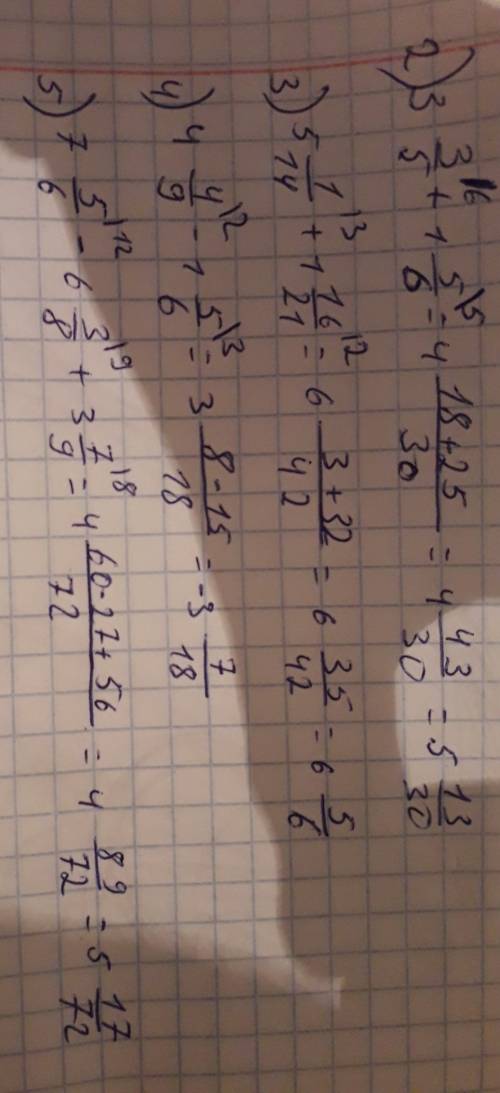 2) 3 3/5 \6 + 1 5/6 \5 = 4 18+25/30 = 4 43/30 = 5 13/30
3) 5 1/14 \3 + 1 16/21 \2 = 6 3+32/42 = 6 35/42 = 6 5/6
4) 4 4/9 \2 - 1 5/6 \3 = 3 8-15/18 = -3 7/18
5) 7 5/6 \12 - 6 3/8 \9 + 3 7/9 \8 = 4 60-27+56/72 = 4 89/72 = 5 17/72